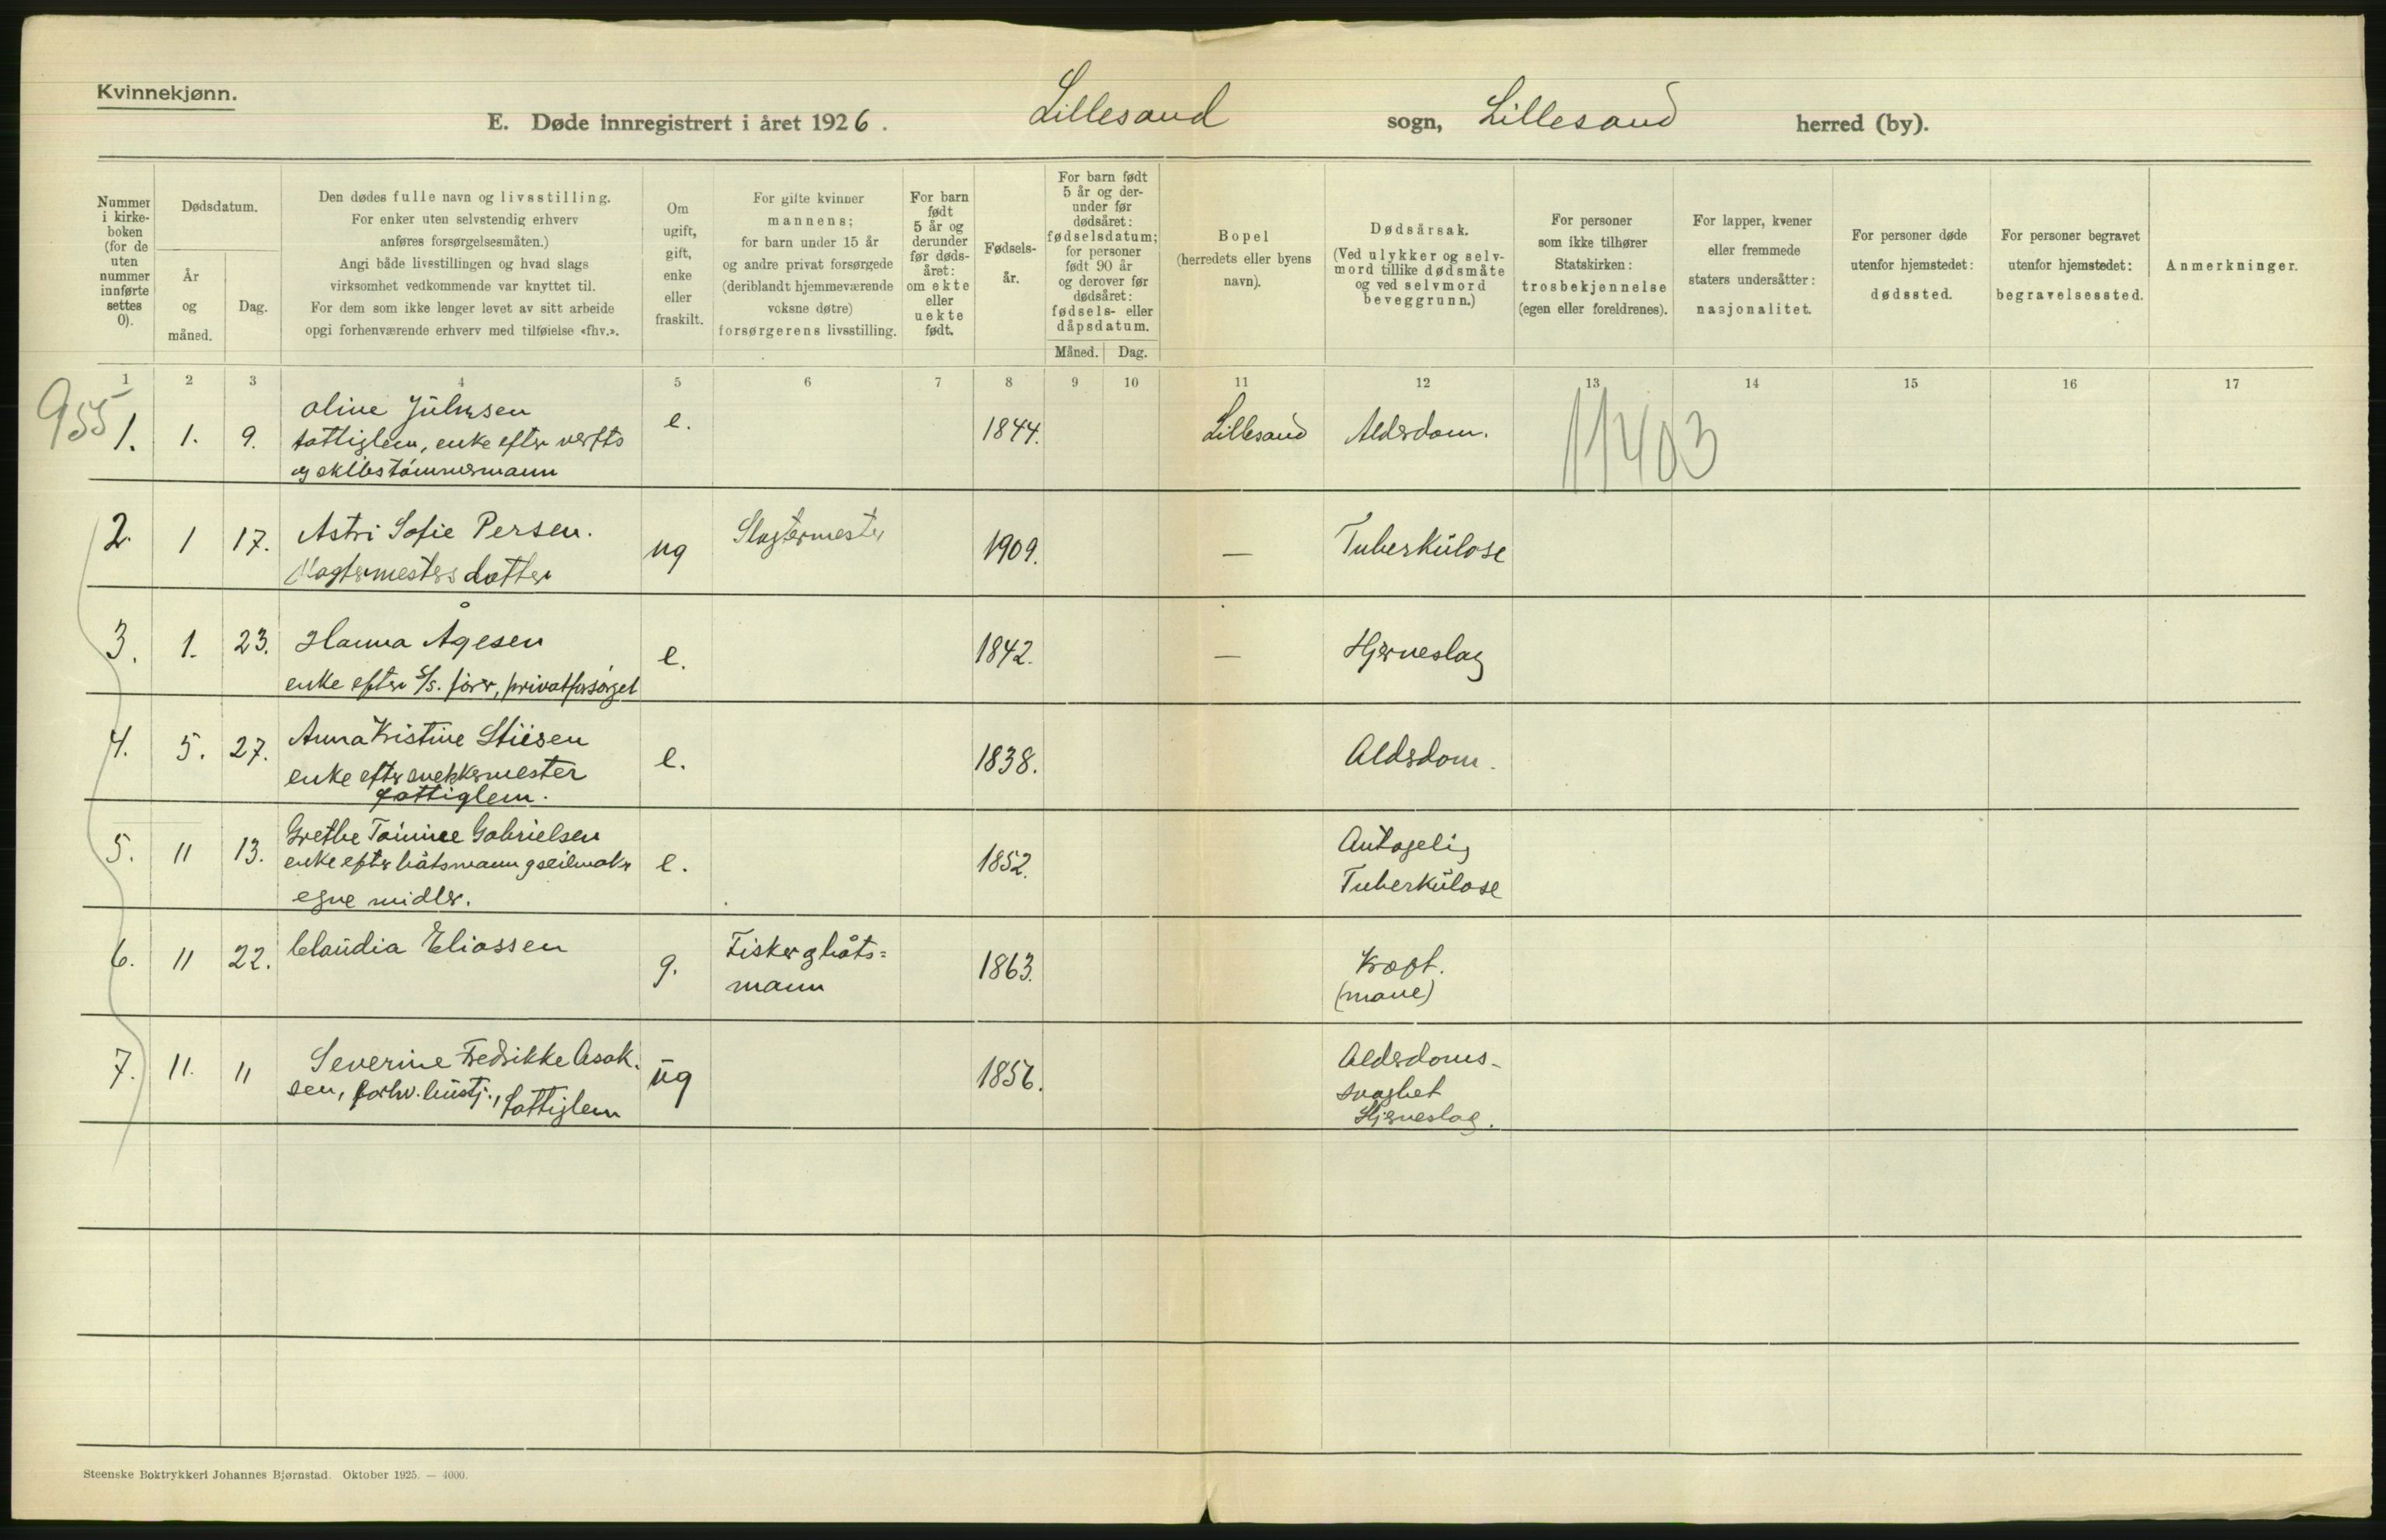 Kvinnekjønn.
E. Døde innregistrert i året 1926. Lillesand sogn, Lillesand herred (by).
Nummer i kirkeboken (for de uten nummer innførte settes 0).
Dødsdatum.
År og måned.
Dag.
Den dødes fulle navn og livsstilling.
For enker uten selvstendig erhverv
anføres forsørgelsesmåten.)
Angi både livsstillingen og hvad slags
virksomhet vedkommende var knyttet til.
For dem som ikke lenger levet av sitt arbeide
opgi forhenværende erhverv med tilføielse «fhv.».
Om
ugift,
gift,
enke
eller
fraskilt.
For gifte kvinner
mannens;
for barn under 15 år
og andre privat forsørgede
(deriblandt hjemmeværende
voksne døtre)
forsørgerens livsstilling.
For barn
født
5 år og
derunder
før døds-
året:
om ekte
eller
uekte
født.
Fødsels-
år.
For barn født
5 år og der-
under før
dødsåret:
fødselsdatum;
for personer
født 90 år
og derover før
dødsåret:
fødsels- eller
dåpsdatum.
Måned. Dag.
Bopel
(herredets eller byens
navn).
Dødsårsak.
(Ved ulykker og selv-
mord tillike dødsmåte
og ved selvmord
beveggrunn.)
For personer
som ikke tilhører
Statskirken:
trosbekjennelse
(egen eller foreldrenes).
For lapper, kvener
eller fremmede
staters undersåtter:
nasjonalitet.
For personer døde
utenfor hjemstedet:
dødssted.
For personer begravet
utenfor hjemstedet:
begravelsessted.
Anmerkninger.
1 2 3 4 5 6 7 8 9 10 11 12 13 14 15 16 17
955
11403
1. 1. 9. Oline Juliusen e. 1844. Lillesand Alderdom.
fattiglem, enke efter verfts
og skibstømmermann
2. 1 17. Astri Sofie Persen. ug Slagtermester 1909. — Tuberkulose
Slagtermesters datter
3. 1. 23. Hanna Ågesen e. 1842. — Hjerneslag
enke efter S/S. fører, privatforsørget
4. 5. 27. Anna Kristine e. 1838. Alderdom.
enke efter snekkermester
fattiglem.
5. 11 13. Grethe Gabrielsen e. 1852. Antagelig
enke efter båtsmann og seilmaker Tuberkulose
egne midler.
6. 11 22. Claudia Eliassen g. Fisker og båts= 1863. Kræft.
mann (mave)
7. 11. 11 Severine Fredrikke Asak- ug 1856. Alderdoms-
sen, forhv. hustj., fattiglem svaghet
Hjerneslag.
Steenske Boktrykkeri Johannes Bjørnstad. Oktober 1925. — 4000.